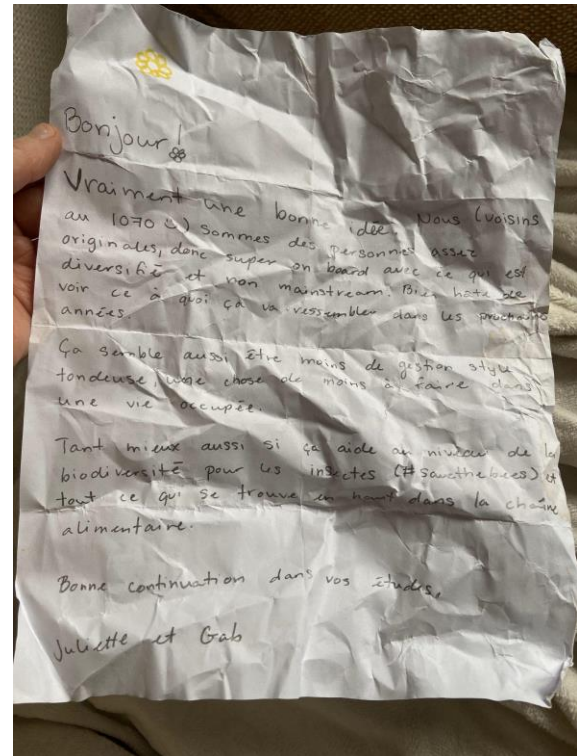 Bonjour!
Vraiment une bonne idée. Nous (voisins
au 1070 :) sommes des personnes assez
originales, donc super on board avec ce qui est
diversifié et non mainstream. Bien hâte de
voir ce à quoi ça va ressembler dans les prochaines
années.
Ça semble aussi être moins de gestion style
tondeuse, une chose de moins à faire dans
une vie occupée.
Tant mieux aussi si ça aide au niveau de la
biodiversité pour les insectes (#savethebees) et
tout ce qui se trouve en haut dans la chaîne
alimentaire.
Bonne continuation dans vos études,
Juliette et Gab